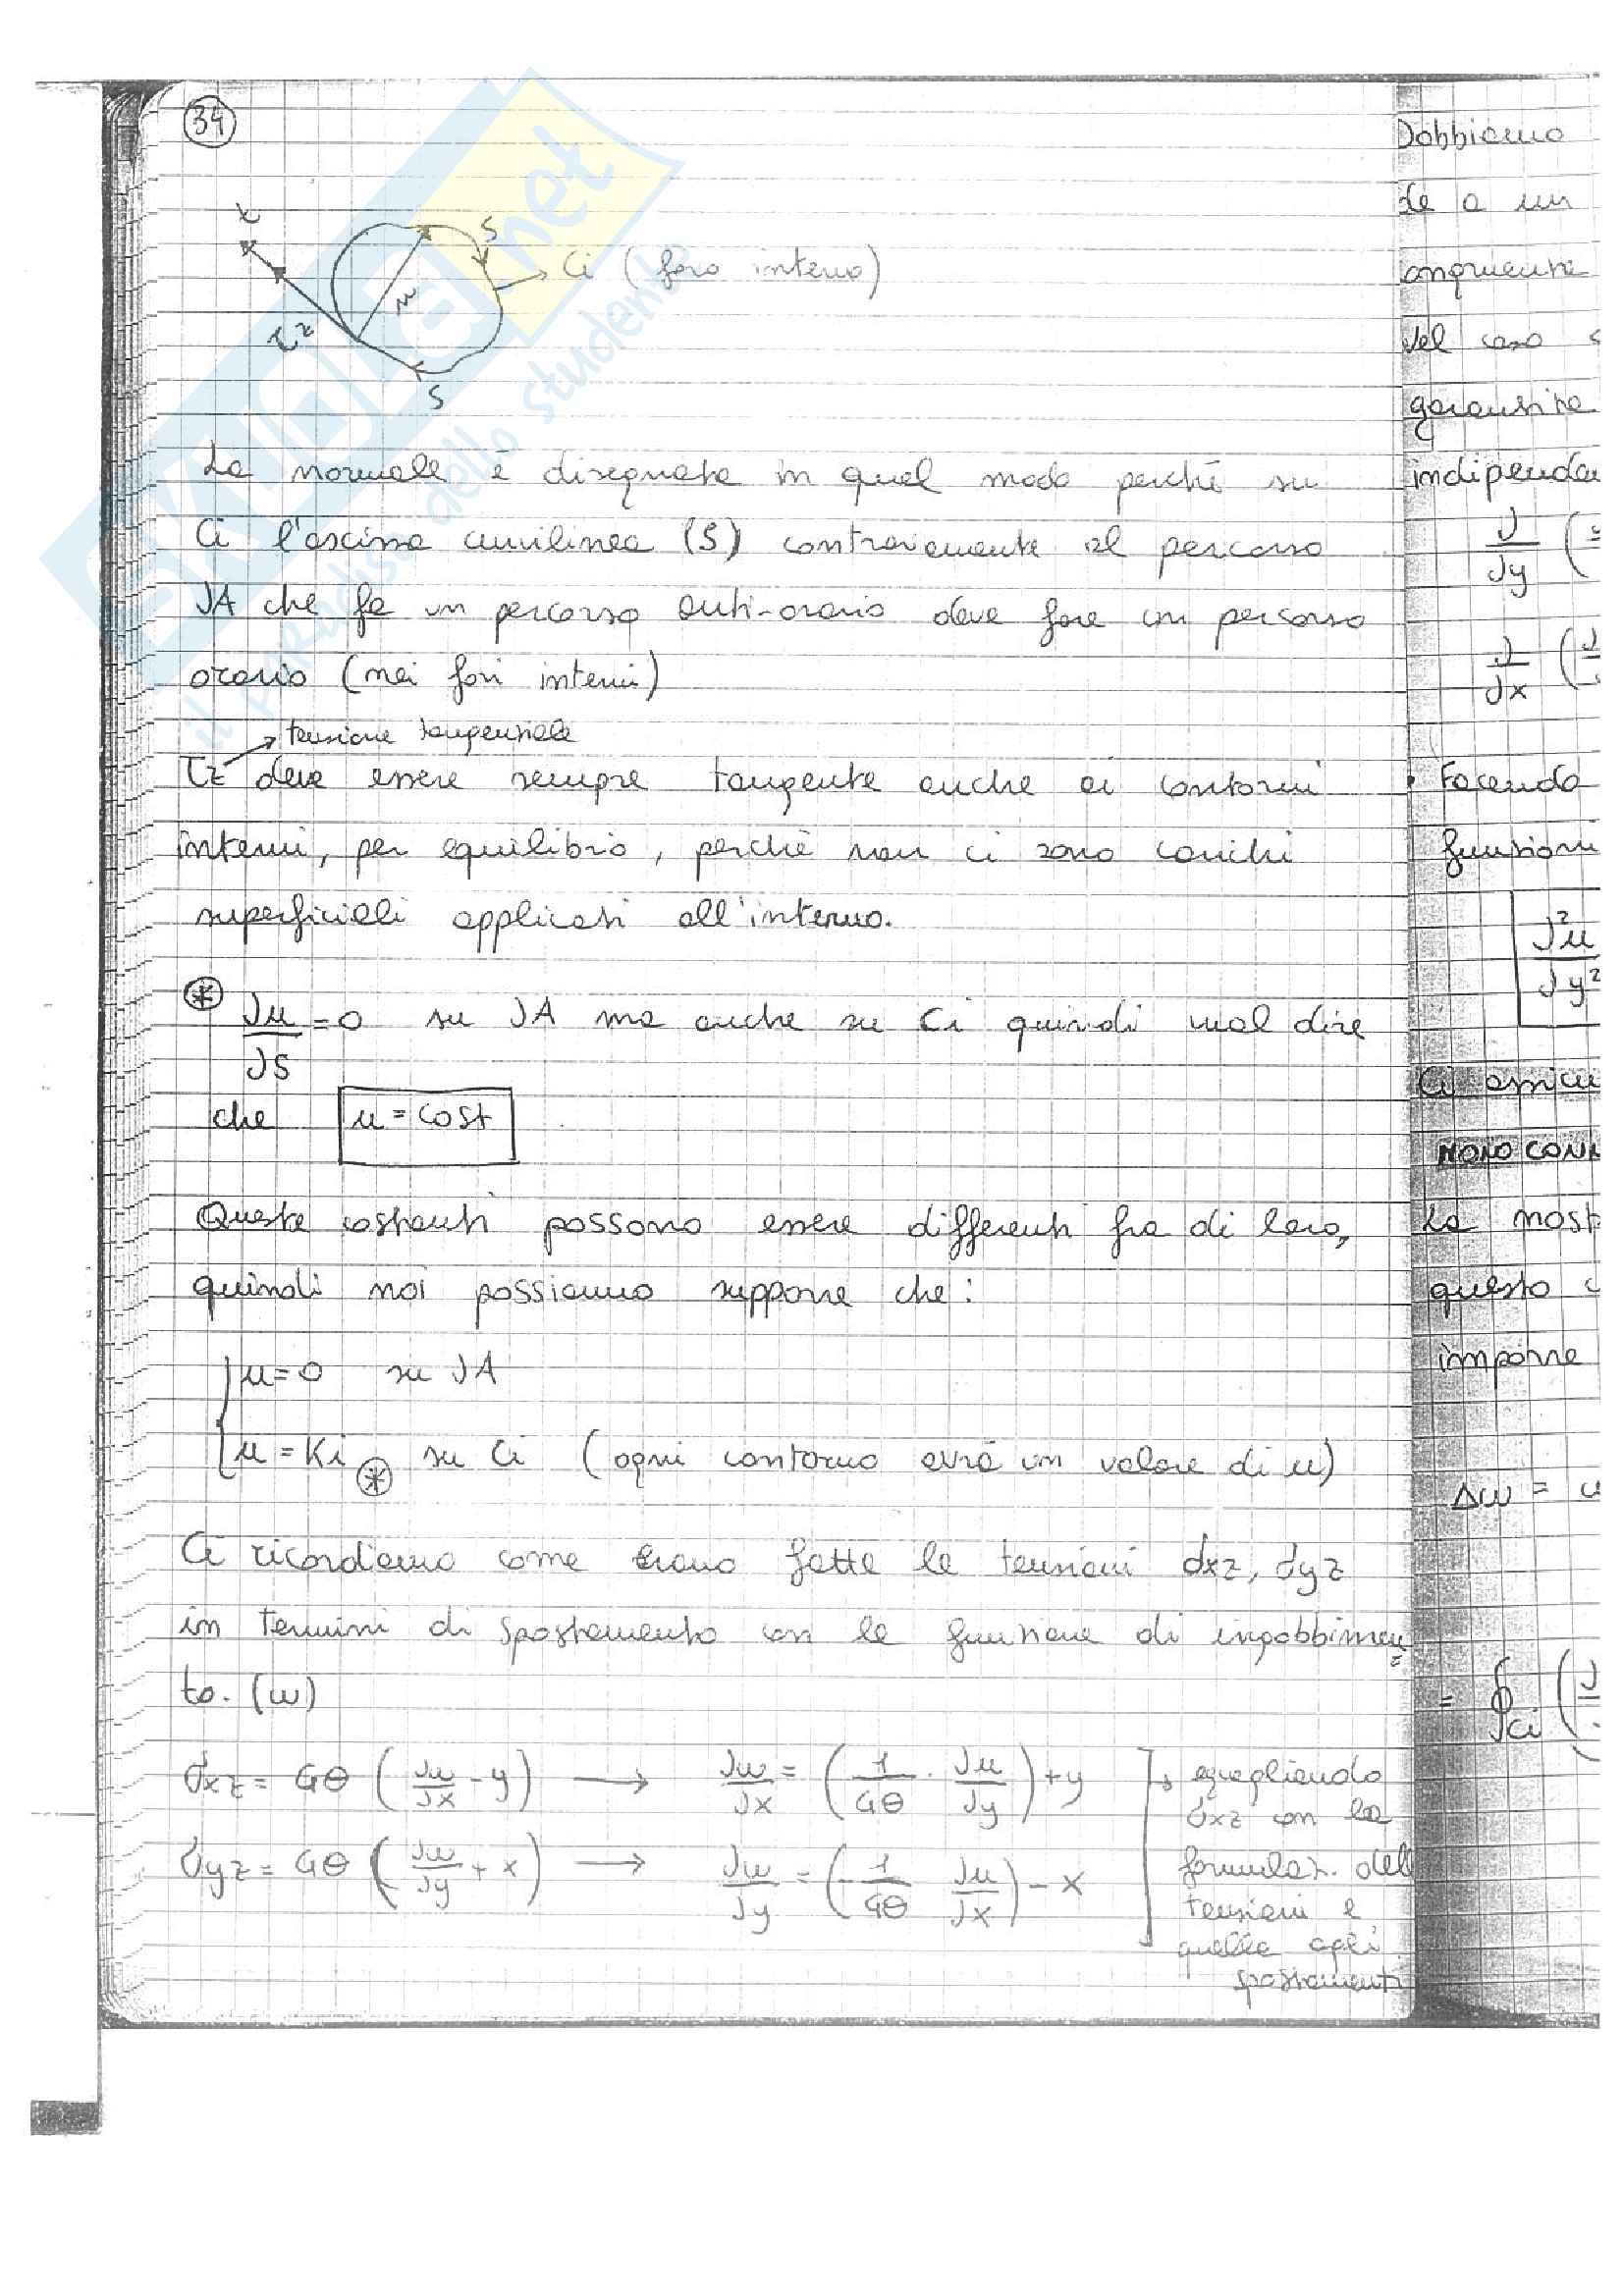 34
t
S
n
Ci (foro interno)
τz
S
La normale è disegnata in quel modo perché su
Ci l'ascissa curvilinea (S) contrariamente al percorso
∂A che fa un percorso anti-orario deve fare un percorso
orario (nei fori interni)
tensione tangenziale
τz deve essere sempre tangente anche ai contorni
interni, per equilibrio, perché non ci sono carichi
superficiali applicati all'interno.
* ∂u/∂S = 0 su ∂A ma anche su Ci quindi vuol dire
che u = cost
Queste costanti possono essere differenti fra di loro,
quindi noi possiamo supporre che:
u = 0 su ∂A
u = Ki * su Ci (ogni contorno avrà un valore di u)
Ci ricordiamo come erano fatte le tensioni σxz, σyz
in termini di spostamento con la funzione di ingobbimen=
to. (w)
σxz = Gθ (∂w/∂x - y) → ∂w/∂x = (1/Gθ · ∂u/∂y) + y
σyz = Gθ (∂w/∂y + x) → ∂w/∂y = (- 1/Gθ ∂u/∂x) - x
→ eguagliando
σxz con la
formulaz. dell
tensioni e
quella agli
spostamenti
Dobbiamo
de a un
ongruente
garantire
∂/∂y (
∂/∂x (
• Facendo
funzioni
∂²u/∂y²
Ci assicu
MONO CONN
La nost
questo c
imporre
Δw =
= ∮Ci (
SKUOLA.net
il paradiso dello studente